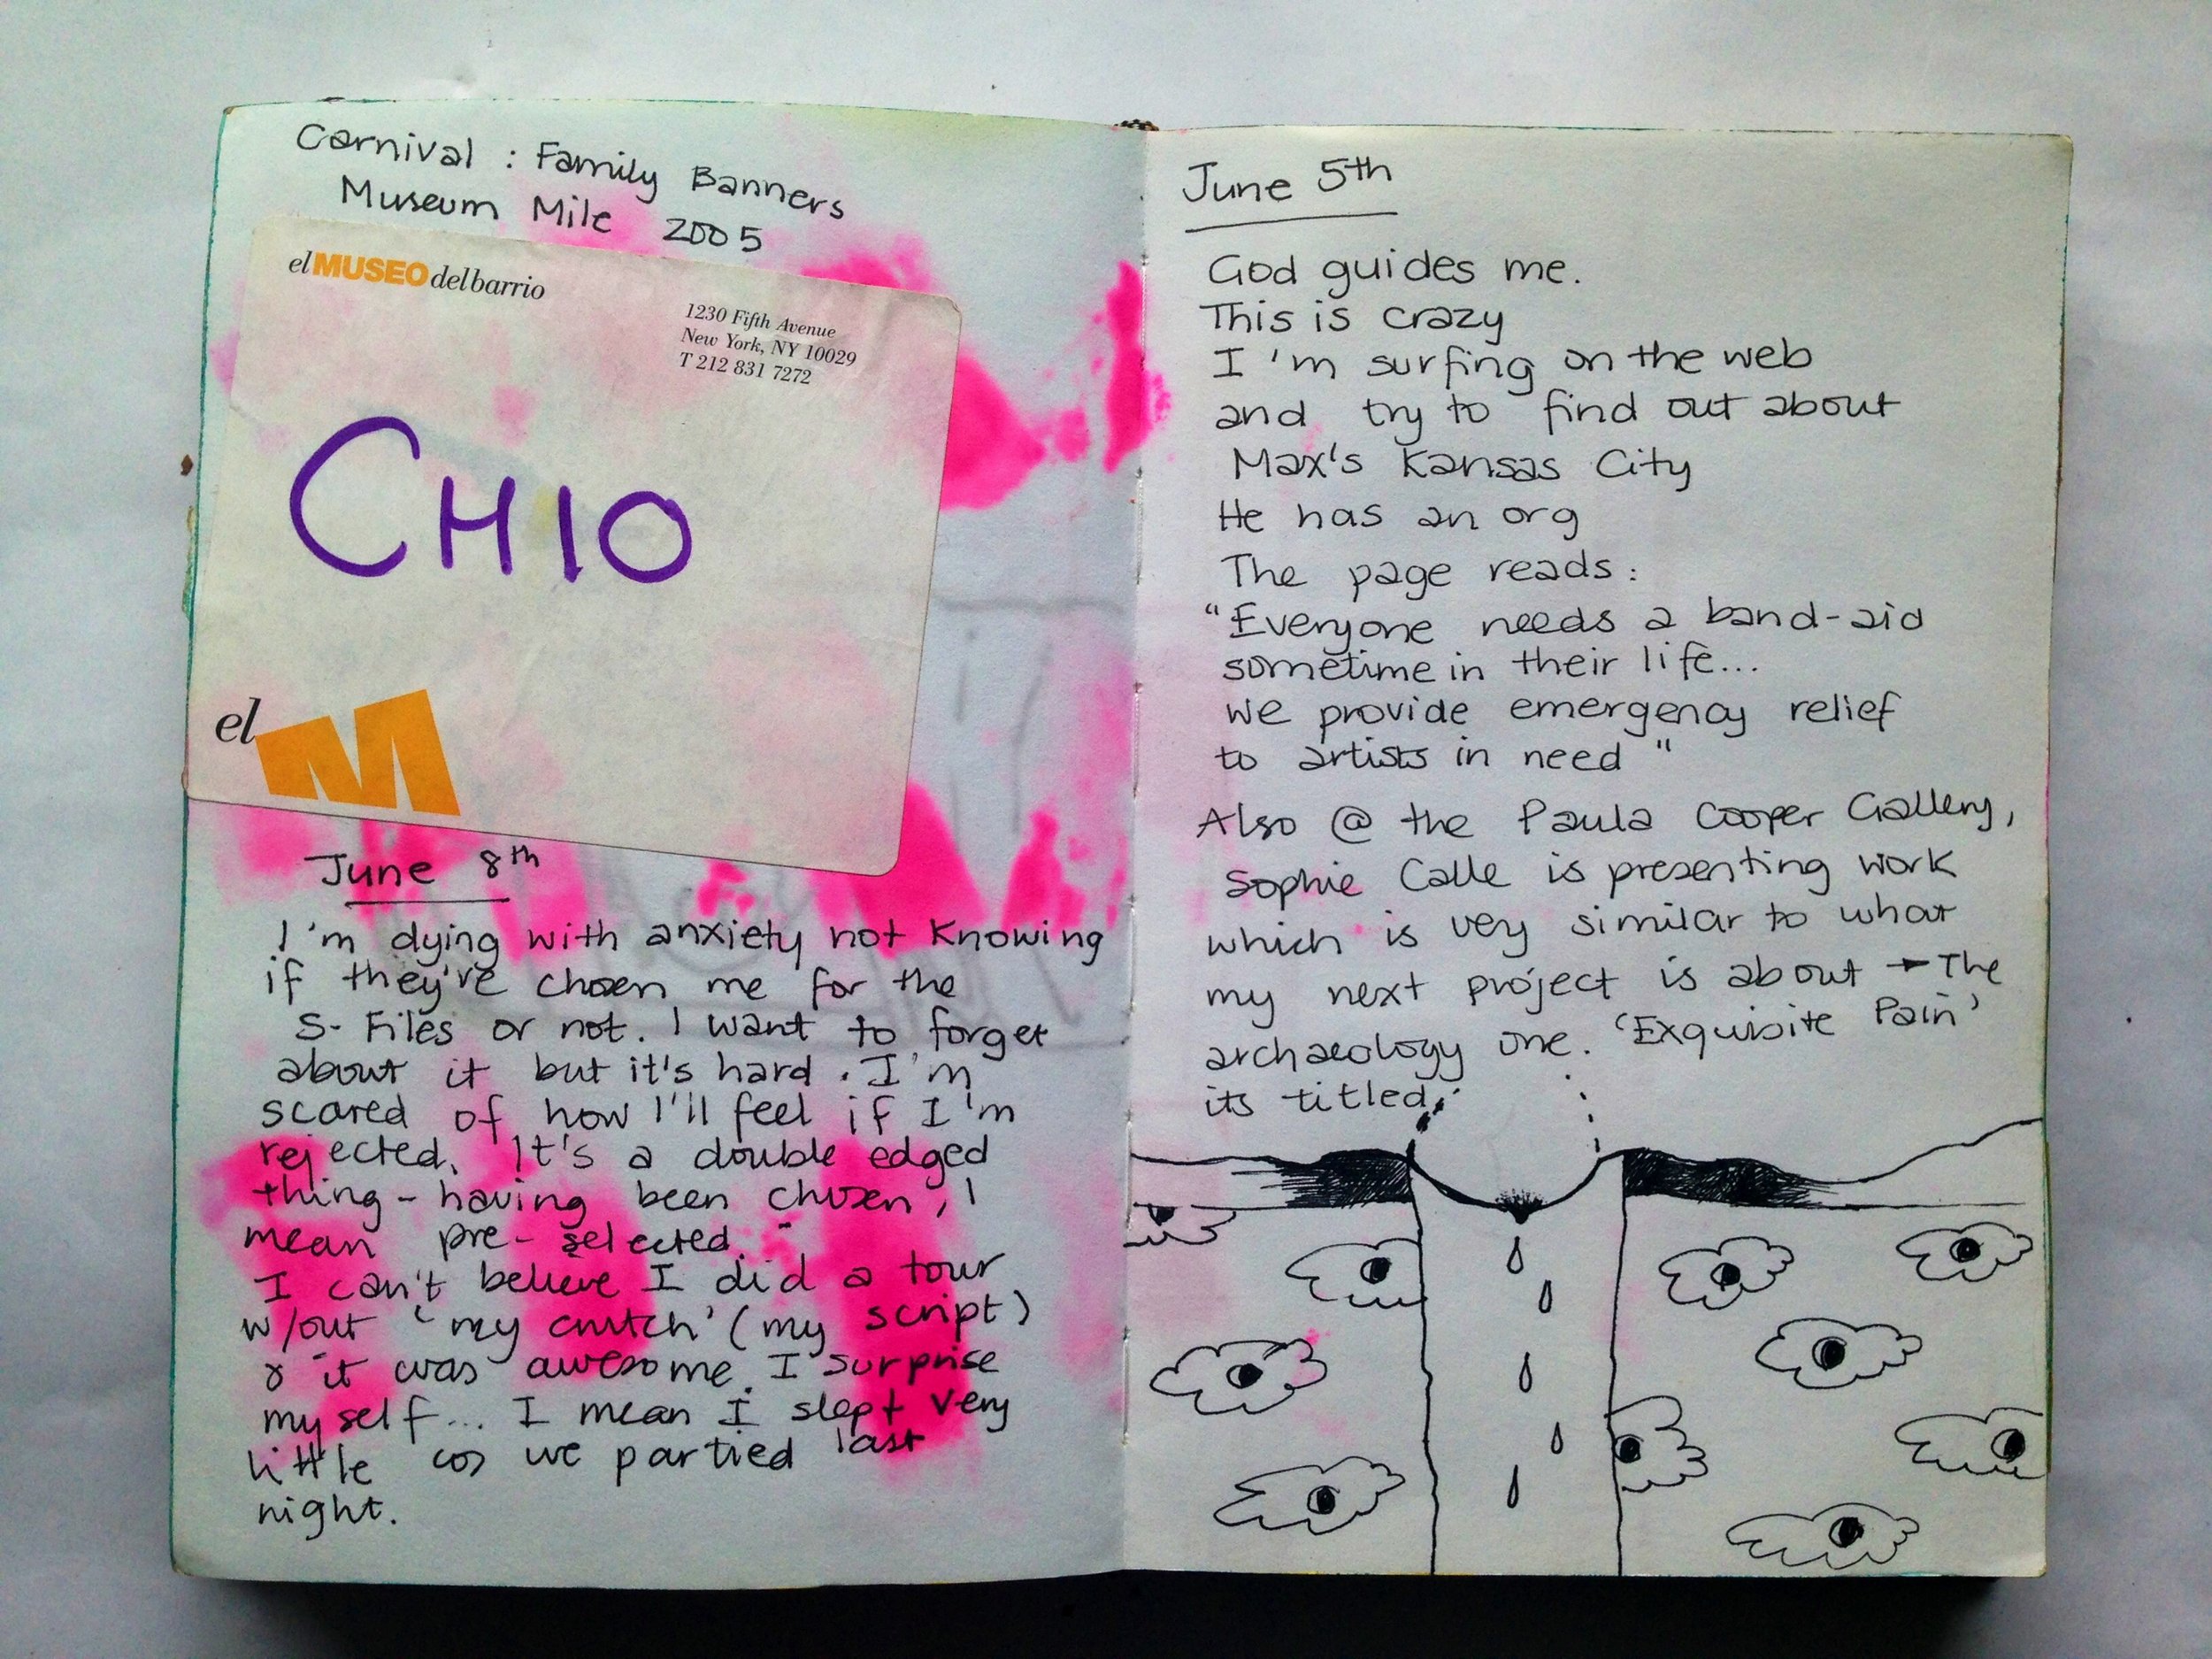 Carnival : Family Banners
Museum Mile 2005
el MUSEO del barrio
1230 Fifth Avenue
New York, NY 10029
T 212 831 7272
CHIO
el M
June 8th
I'm dying with anxiety not knowing
if they've chosen me for the
S-Files or not. I want to forget
about it but it's hard. I'm
scared of how I'll feel if I'm
rejected. It's a double edged
thing - having been chosen, I
mean pre-selected.
I can't believe I did a tour
w/out 'my crutch' (my script)
& it was awesome. I surprise
myself... I mean I slept very
little cos we partied last
night.
June 5th
God guides me.
This is crazy
I'm surfing on the web
and try to find out about
Max's Kansas City
He has an org
The page reads:
"Everyone needs a band-aid
sometime in their life...
we provide emergency relief
to artists in need"
Also @ the Paula Cooper Gallery,
Sophie Calle is presenting work
which is very similar to what
my next project is about → The
archaeology one. 'Exquisite Pain'
its titled.